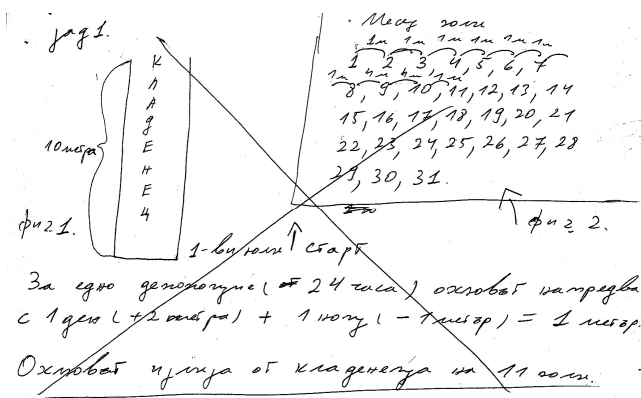 зад 1.
К
Л
А
Д
Е
Н
Е
Ц
10 метра
фиг 1.
1-ви юли ↑ старт
Месец юли
1м 1м 1м 1м 1м 1м
1 2 3 4, 5, 6, 7
1м 1м 1м 1м
8, 9, 10, 11, 12, 13, 14
15, 16, 17, 18, 19, 20, 21
22, 23, 24, 25, 26, 27, 28
29, 30, 31.
фиг 2.
За едно денонощие (от 24 часа) охлювът напредва
с 1 ден (+2 метра) + 1 нощ (-1 метър) = 1 метър.
Охлювът излиза от кладенеца на 11 юли.